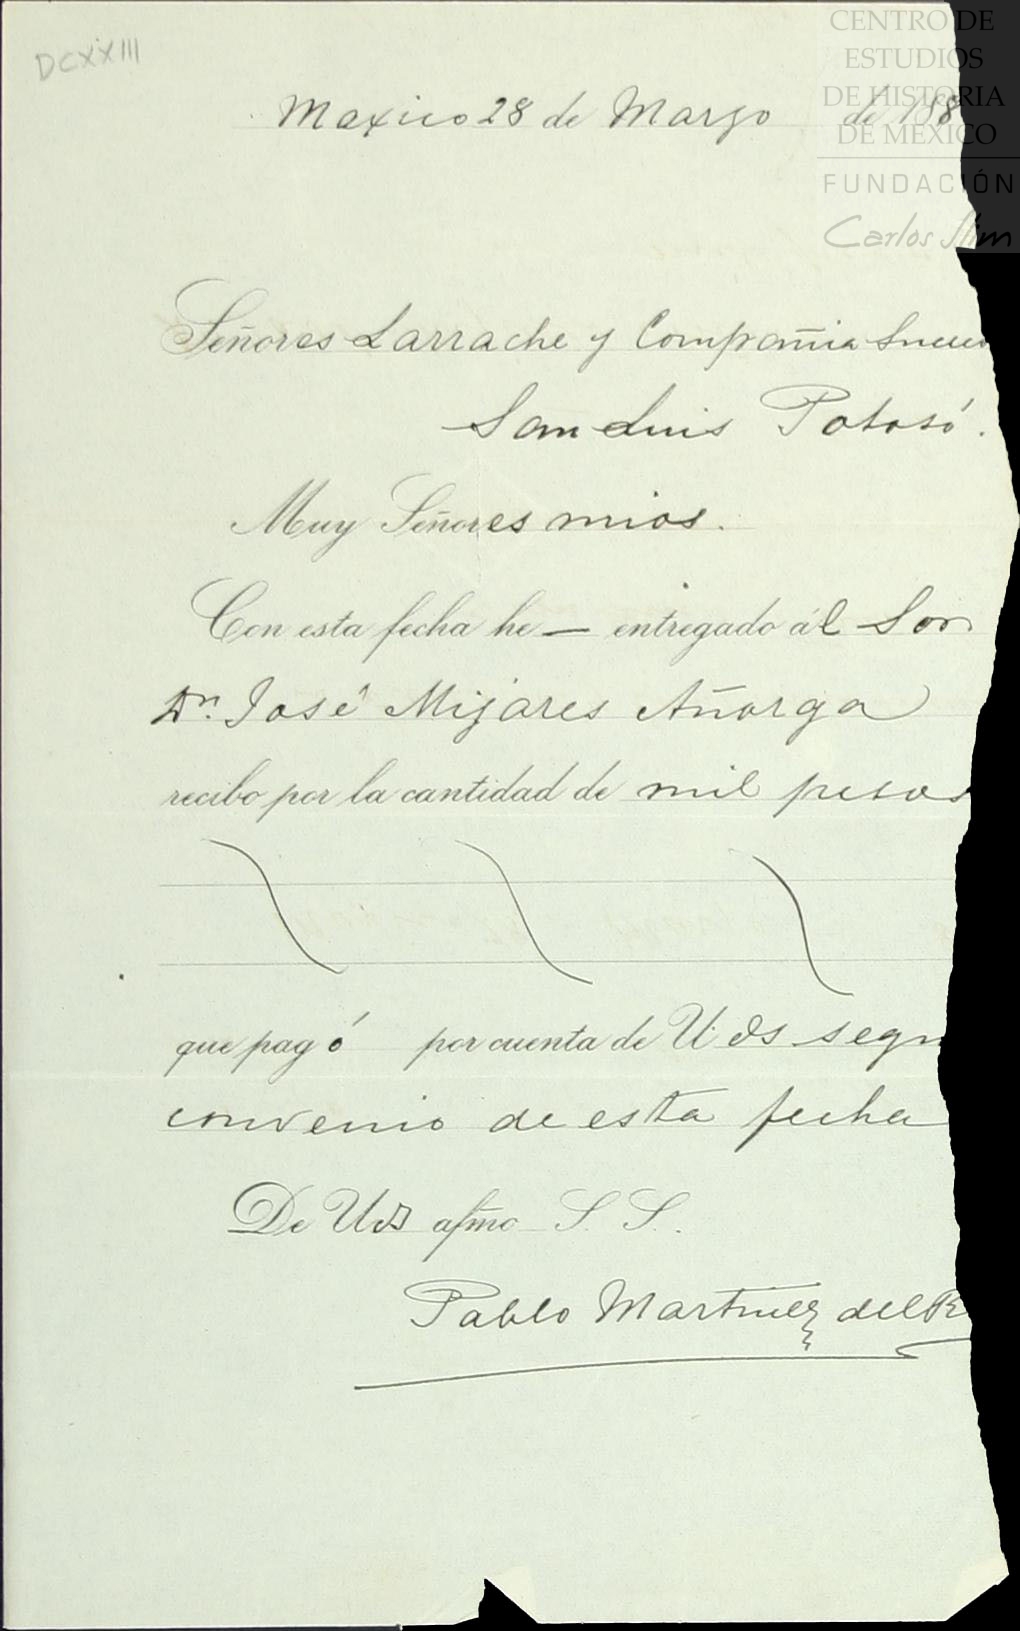 DCXXIII
CENTRO DE
ESTUDIOS
DE HISTORIA
DE MÉXICO
FUNDACIÓN
Carlos Slim
Mexico 28 de Marzo de 188
Señores Larrache y Compañia Suceso
San Luis Potosí.
Muy Señores mios.
Con esta fecha he — entregado ál Sor
Dn. José Mijares Añorga
recibo por la cantidad de mil pesos
que pagó por cuenta de Uds segn
convenio de esta fecha
De Uds afmo S. S.
Pablo Martinez del R